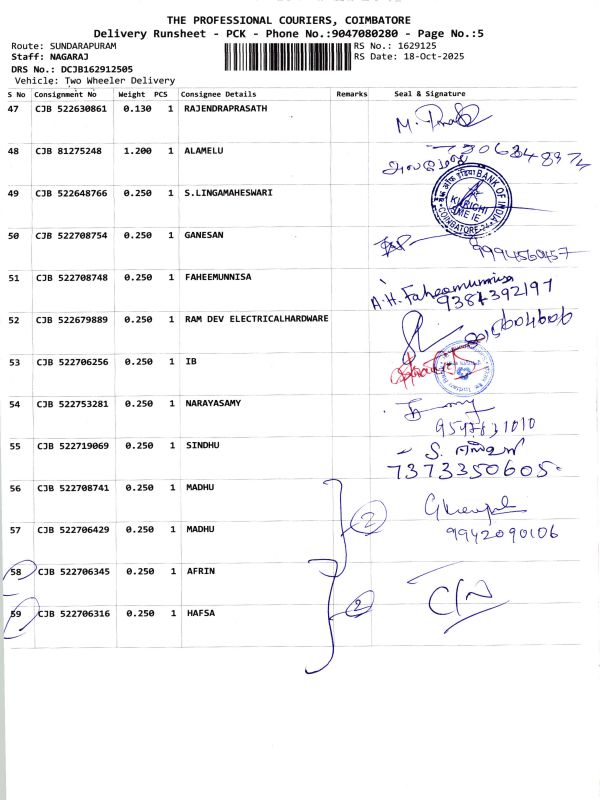 THE PROFESSIONAL COURIERS, COIMBATORE
Delivery Runsheet - PCK - Phone No.:9047080280 - Page No.:5
Route: SUNDARAPURAM RS No.: 1629125
Staff: NAGARAJ RS Date: 18-Oct-2025
DRS No.: DCJB162912505
Vehicle: Two Wheeler Delivery
S No Consignment No Weight PCS Consignee Details Remarks Seal & Signature
47 CJB 522630861 0.130 1 RAJENDRAPRASATH
48 CJB 81275248 1.200 1 ALAMELU
அலமேலு
49 CJB 522648766 0.250 1 S.LINGAMAHESWARI
BANK OF INDIA
COIMBATORE
50 CJB 522708754 0.250 1 GANESAN
51 CJB 522708748 0.250 1 FAHEEMUNNISA
A.H. Faheemunnisa
9384392197
52 CJB 522679889 0.250 1 RAM DEV ELECTRICALHARDWARE
53 CJB 522706256 0.250 1 IB
54 CJB 522753281 0.250 1 NARAYASAMY
55 CJB 522719069 0.250 1 SINDHU
7373350605
56 CJB 522708741 0.250 1 MADHU
2
57 CJB 522706429 0.250 1 MADHU
9942090106
58 CJB 522706345 0.250 1 AFRIN
59 CJB 522706316 0.250 1 HAFSA
2